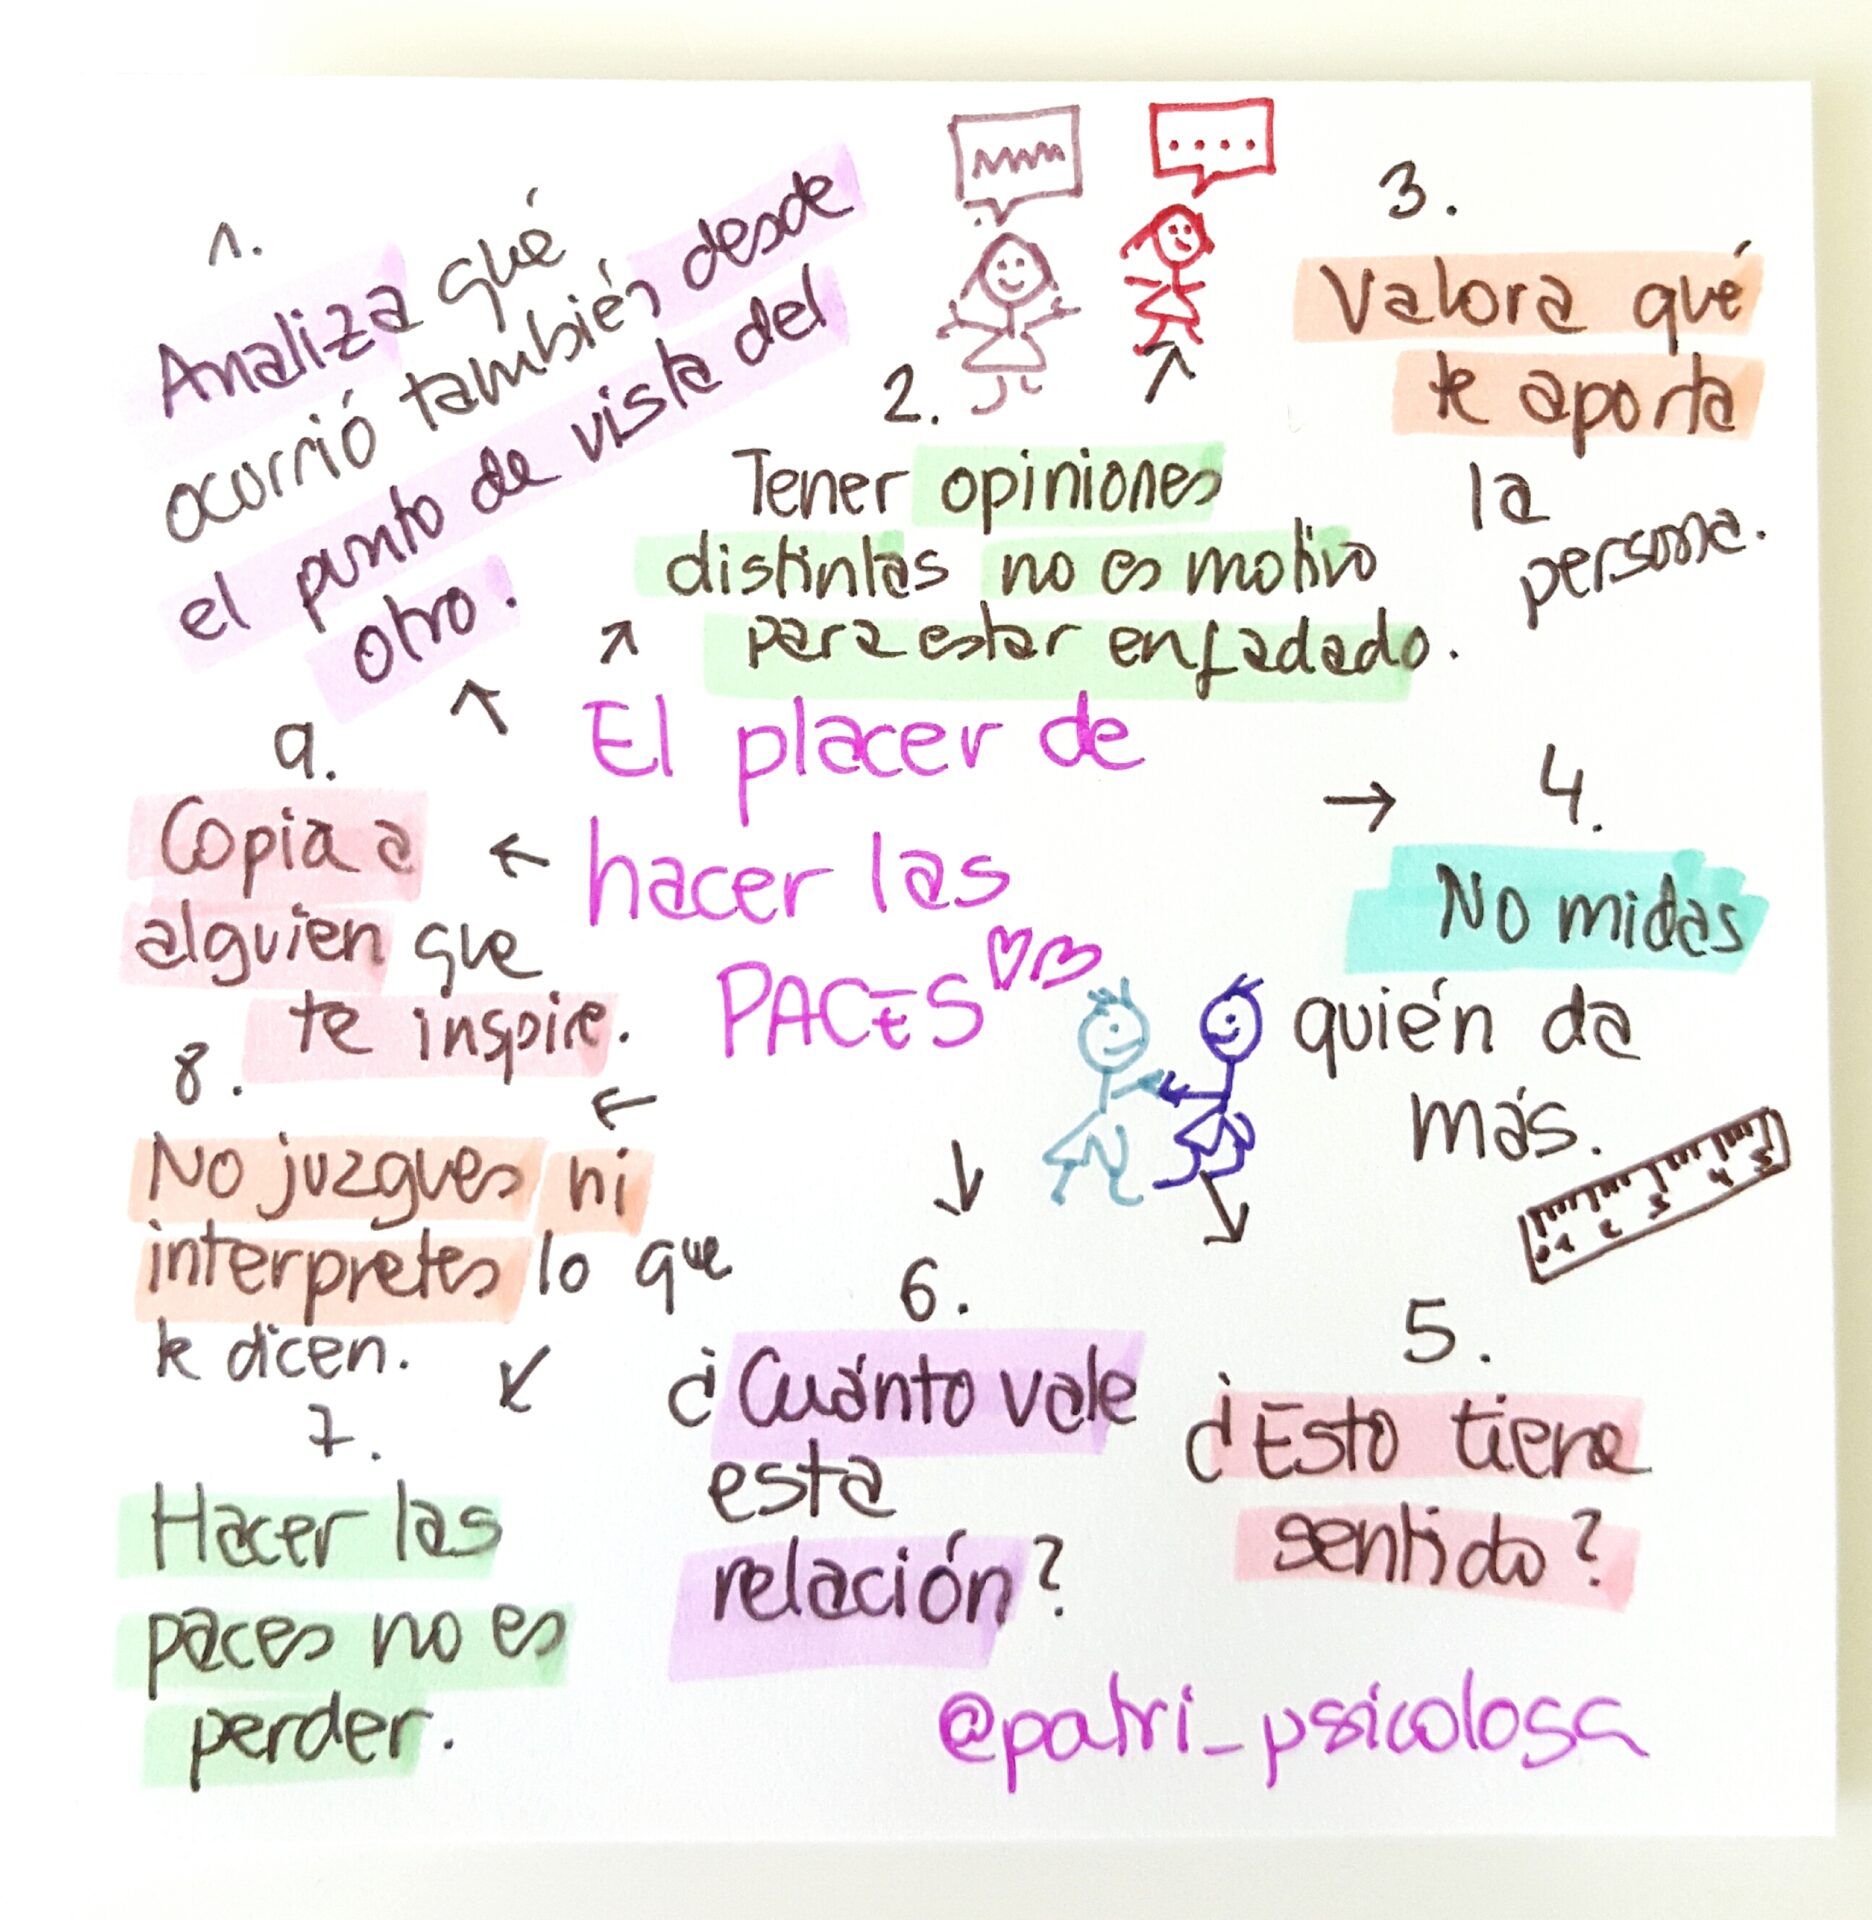 1.
Analiza qué
ocurrió también desde
el punto de vista del
otro.
2.
Tener opiniones
distintas no es motivo
para estar enfadado.
3.
Valora qué
te aporta
la
persona.
El placer de
hacer las
PACES
4.
No midas
quién da
más.
0 1 2 3 4 5
5.
¿Esto tiene
sentido?
6.
¿Cuánto vale
esta
relación?
7.
Hacer las
paces no es
perder.
8.
No juzgues ni
interpretes lo que
te dicen.
9.
Copia a
alguien que
te inspire.
@patri_psicologa